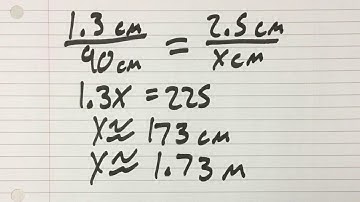 1.3 cm / 90 cm = 2.5 cm / x cm
1.3x = 225
x ≈ 173 cm
x ≈ 1.73 m